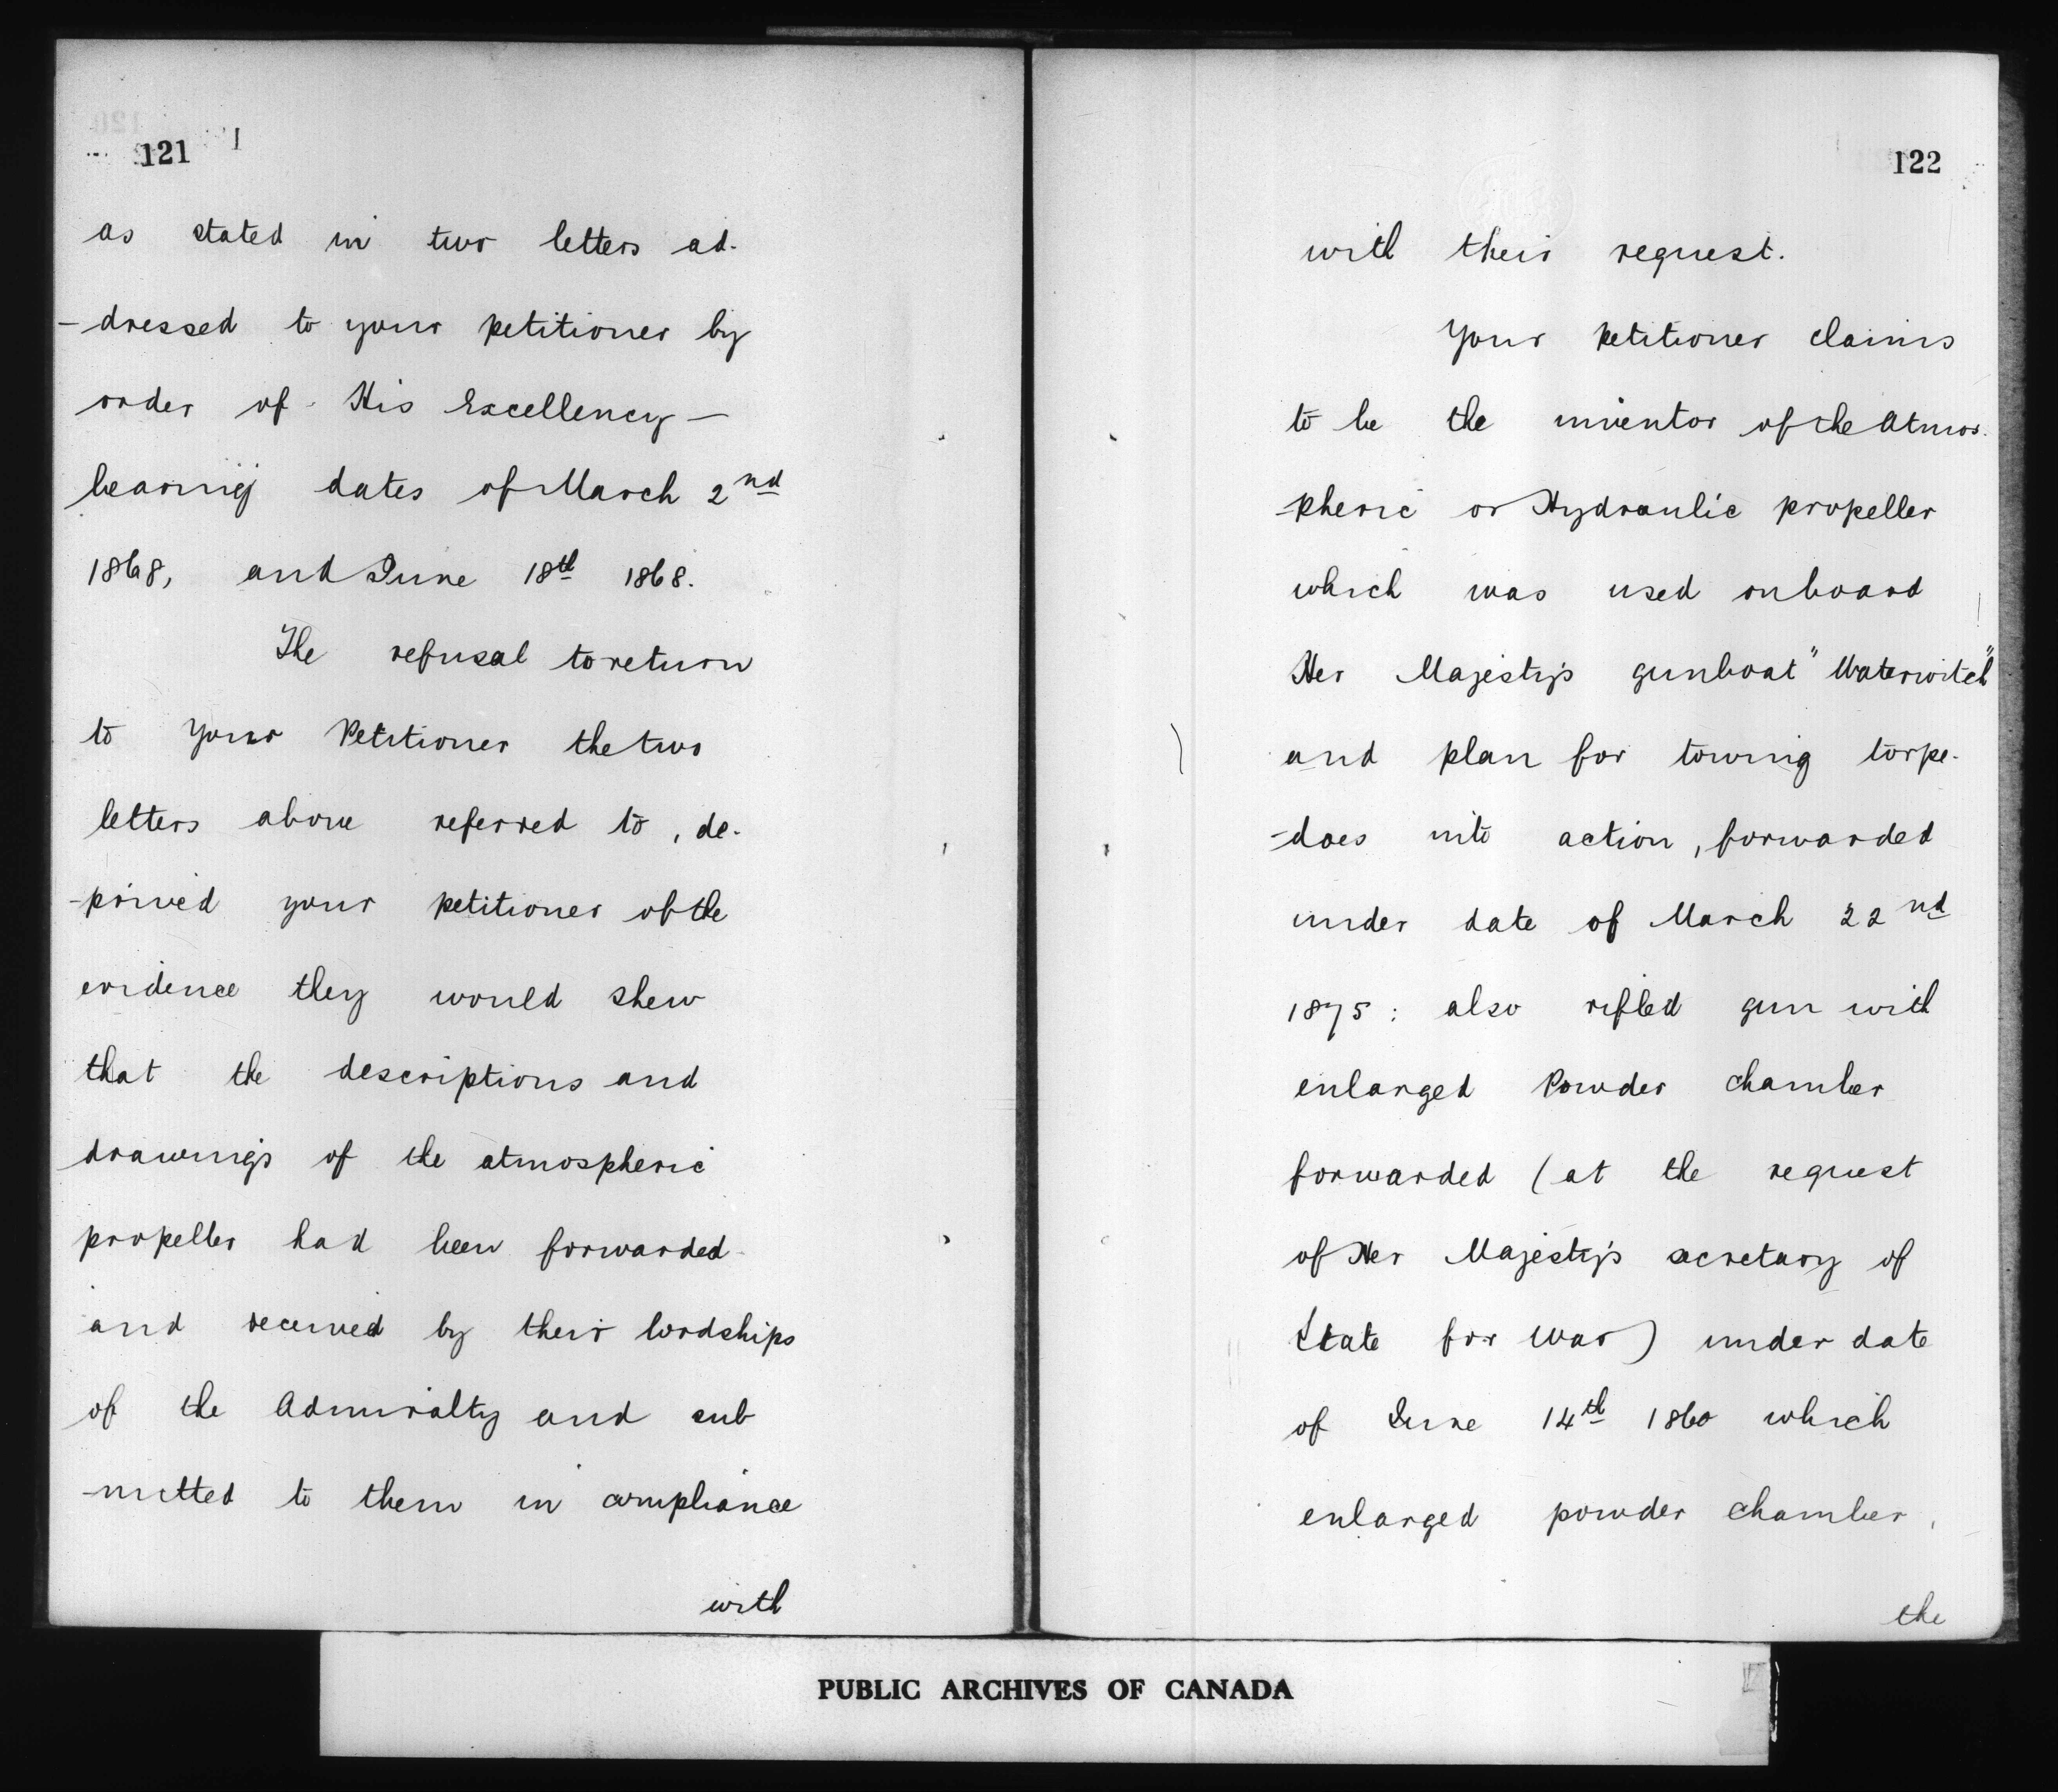 121
as stated in two letters ad-
-dressed to your petitioner by
order of His Excellency —
bearing dates of March 2nd
1868, and June 18th 1868.
The refusal to return
to your Petitioner the two
letters above referred to, de-
-prived your petitioner of the
evidence they would shew
that the descriptions and
drawings of the atmospheric
propeller had been forwarded
and received by their lordships
of the Admiralty and sub
-mitted to them in compliance
with
122
with their request.
Your petitioner claims
to be the inventor of the Atmos-
-pheric or Hydraulic propeller
which was used onboard
Her Majesty's gunboat "Waterwitch"
and plan for towing torpe-
-does into action, forwarded
under date of March 22nd
1875: also rifled gun with
enlarged Powder chamber
forwarded (at the request
of Her Majesty's secretary of
State for War) under date
of June 14th 1860 which
enlarged powder chamber,
the
PUBLIC ARCHIVES OF CANADA